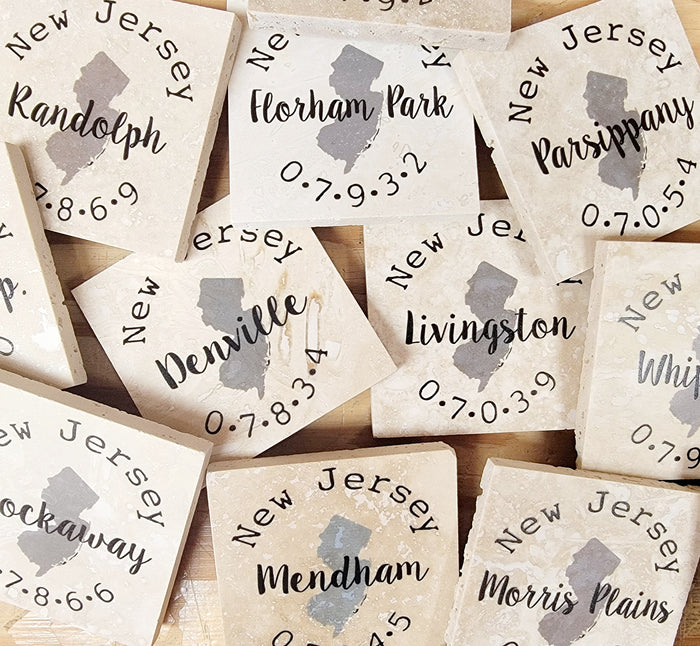 New Jersey
Randolph
7•8•6•9
Ne
Florham Park
0•7•9•3•2
New Jersey
Parsippany
0•7•0•5•4
p.
New ersey
Denville
0•7•8•3•4
New Je
Livingston
0•7•0•3•9
New
Whip
0•7•9
ew Jersey
ockaway
7•8•6•6
New Jersey
Mendham
4•5
New Jersey
Morris Plains